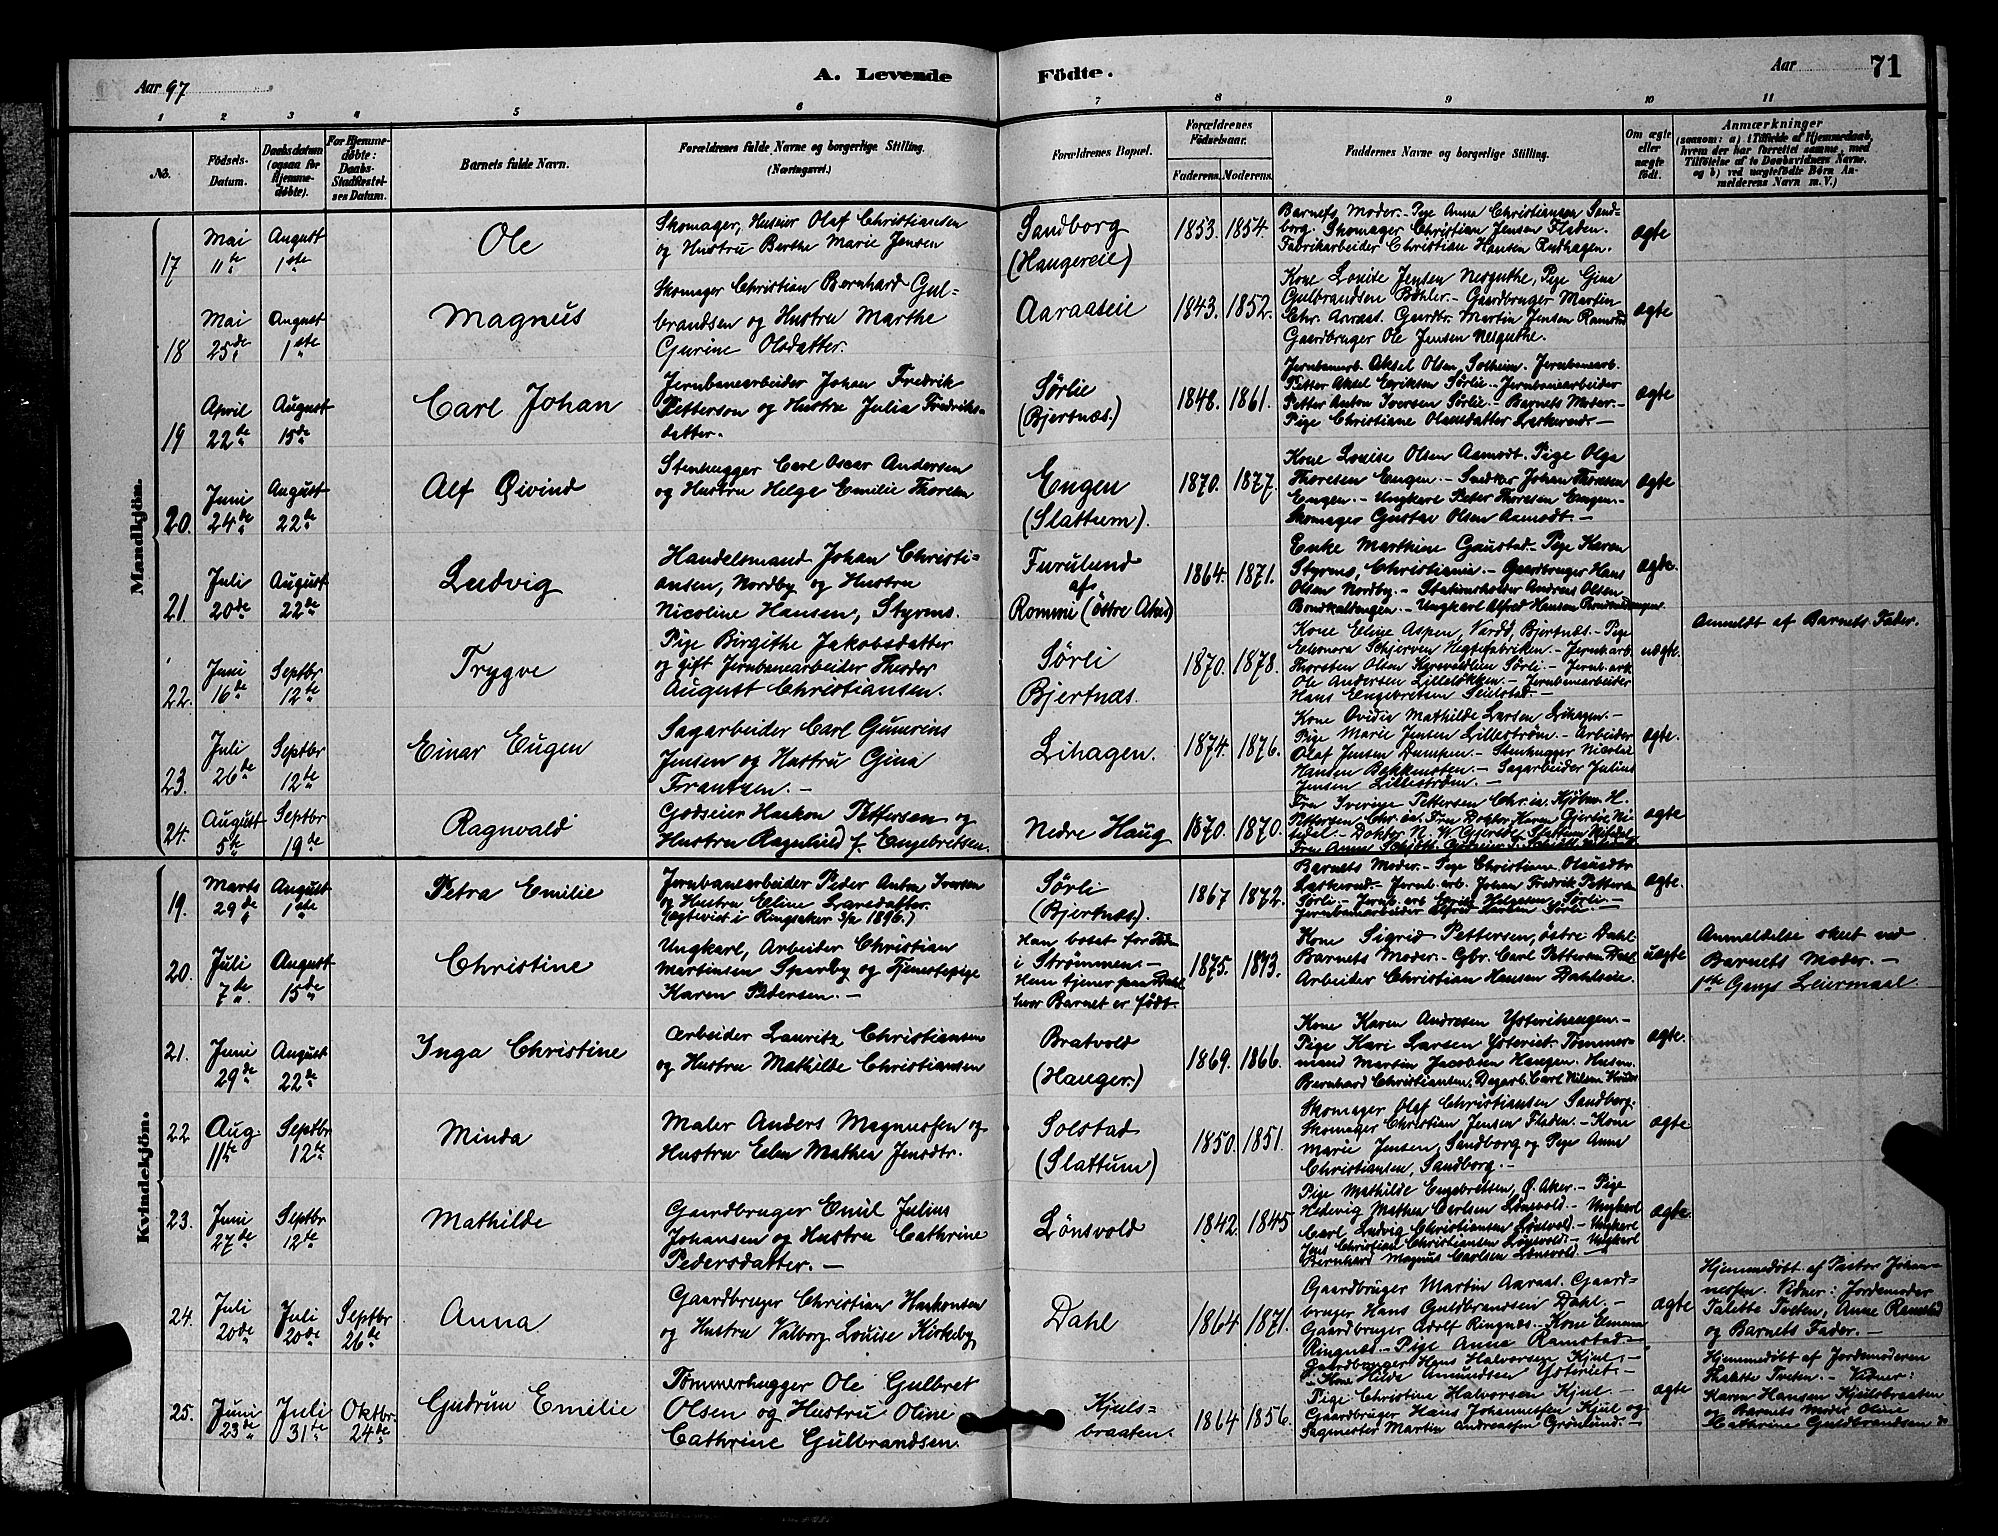 Aar 97
A. Levende
Födte.
Aar
71
1 2 3 4 5 6 7 8 9 10 11
No.
Födsels-
Datum.
Daabsdatum
(ogsaa for
Hjemme-
døbte).
For Hjemme-
døbte:
Daabs-
Stadfæstel-
ses Datum.
Barnets fulde Navn.
Forældrenes fulde Navne og borgerlige Stilling.
(Næringsvei.)
Forældrenes Bopæl.
Forældrenes
Födselsaar.
Faderens. Moderens.
Faddernes Navne og borgerlige Stilling.
Om ægte
eller
uægte
födt.
Anmærkninger
(saasom: a) i Tilfælde af Hjemmedaab,
hvem der har forrettet samme, med
Tilföielse af to Daabsvidners Navne.
og b) ved uægtefödte Börn An-
melderens Navn m. V.)
Mandkjön.
17
Mai
11te
August
1ste
Ole
Skomager, Huseier Olaf Christiansen
og Hustru Berthe Marie Jensen
Sandborg
(Haugereie)
1853. 1854.
Barnets Moder. - Pige Anna Christiansen Sand-
borg. Skomager Christian Jensen Fladen.
Fabrikarbeider Christian Hansen Rudhagen.
ægte
18
Mai
25de
August
1ste
Magnus
Skomager Christian Bernhard Gul-
brandsen og Hustru Marthe
Gurine Olsdatter.
Aaraaseie
1843. 1852.
Kone Louise Jensen Nesguthe, Pige Gina
Gulbrandsen Böhler. - Gaardbruger Martin
Chr. Aaraas. Gaardbr. Martin Jensen Ramstad
Gaardbruger Ole Jensen Nesguthe.
ægte
19
April
22de
August
15de
Carl Johan
Jernbanearbeider Johan Fredrik
Petterson og Hustru Julia Fredriks-
datter.
Sørlie
(Bjertnæs.)
1848. 1861.
Jernbanearb. Aksel Olsen, Solheim. Jernbanearb.
Petter Aksel Eriksen Sørlie. - Jernbanearbeider
Petter Anton Iversen Sørlie. - Barnets Moder. -
Pige Christiane Olausdatter Laskerud. -
ægte
20.
Juni
24de
August
22de
Alf Øivind
Stenhugger Carl Oscar Andersen
og Hustru Helga Emilie Thoresen
Engen
(Slattum).
1870. 1877.
Kone Louise Olsen Aamodt. Pige Olga
Thoresen Engen. - Johan Thoresen
Engen. - Ungkarl Peter Thoresen Engen. -
Skomager Gustav Olsen Aamodt. -
ægte
21.
Juli
20de
August
22de
Ludvig
Handelsmand Johan Christi-
ansen, Nordby og Hustru
Nicoline Hansen, Styrms.
Furulund
af
Rommi (östre Akers)
1864. 1871.
Enke Marthine Gaustad. - Pige Karen
Styrms, Christiania. - Gaardbruger Hans
Olsen Nordby. - Stationsholder Andreas Olsen
Bondkallengen. - Ungkarl Alfred Hansen
ægte.
22.
Juni
16de
Septbr
12te
Trygve
Pige Birgithe Jakobsdatter
og gift Jernbanearbeider Theodor
August Christiansen.
Sørli
Bjertnæs.
1870. 1878.
Kone Eline Aspen, Vardö, Bjertnæs. - Pige
Eleonora Schjerven Hegtefabriken. - Jernb.arb
Thorsten Olsen Sørli. - Jernb.arb
Ole Andersen Lilleløkken. - Jernbanearbeider
Hans Engebretsen Seielstad. -
uægte.
Anmeldt af Barnets Fader.
23.
Juli
26de
Septbr
12te
Einar Eugen
Sagarbeider Carl Gunerius
Jensen og Hustru Gina
Frantzen. -
Lihagen.
1874. 1876.
Kone Ovidia Mathilde Larsen Lihagen. -
Pige Marie Jensen Lilleström. - Arbeider
Olaf Jensen - Stenhugger Nicolai
Hansen Bakkensten. - Sagarbeider Julius
Jensen Lilleström. -
ægte.
24.
August
5te
Septbr
19de
Ragnvald
Godseier Haakon Pettersen og
Hustru Ragnhild f. Engebretsen.
Nedre Haug
1870. 1870.
Fru Iverine Pettersen Chr.ia. Kjöbm. H.
Pettersen, Chr.ia. Fru Doktor Karen Gjerdse Ni-
tedal. - Doktor N. W. Gjersöe, Slattum Nitedal.
Fru Anna Schiøtt
ægte
Kvindekjön.
19.
Marts
29de
August
1ste
Petra Emilie
Jernbanearbeider Peder Anton Iversen
og Hustru Eline Larsdatter.
(ægteviet i Ringsaker 3/12 1896.)
Sørli
(Bjertnæs).
1867 1872.
Barnets Moder. - Pige Christiane Olausdtr
Laskerud. - Jernb. arb. Johan Fredrik Petterson
Sørli. - Jernb. arb Helgesen, Sørli. -
Jernbanearbeider Karlsen Sørli. -
ægte.
20.
Juli
7de
August
15de
Christine
Ungkarl, Arbeider Christian
Martinsen Spærby og Tjenestepige
Karen Pedersen. -
Han bosat for Tiden
i Strømmen. -
Hun tjener paa Dahl
hvor Barnet er födt.
1875. 1873.
Kone Sigrid Pettersen, östre Dahl
Barnets Moder. - Gbr. Carl Pettersen Dahl
Arbeider Christian Hansen Dahleie.
uægte
Anmeldelse skeet ved
Barnets Moder. -
1ste Gangs Leiermaal.
21.
Juni
29de
August
22de
Inga Christine
Arbeider Lauritz Christiansen
og Hustru Mathilde Christiansen
Bratvold
(Hauger.)
1869. 1866.
Kone Karen Andresen Ysterihaugen. -
Pige Kari Larsen Ysteriet. Tömmer-
mand Martin Jacobsen Haugen. Husm.
Bernhard Christiansen, Dagarb. Carl Nilsen
ægte.
22
Aug.
11te
Septbr
12te
Minda
Maler Anders Magnussen og
Hustru Elen Mathea Jensdtr.
Solstad
(Slattum)
1850. 1851.
Skomager Olaf Christiansen Sandberg.
Skomager Christian Jensen Fladen. - Kone
Marie Jensen, Sandborg og Pige Anna
Christiansen, Sandborg. -
ægte
23.
Juni
27de
Septbr
12te
Mathilde
Gaardbruger Emil Julius
Johansen og Hustru Cathrine
Pedersdatter. -
Lönsvold
1842. 1845
Pige Mathilde Engebretsen, Ø. Aker. - Pige
Hedevig Mathea Carlsen Lönsvold. - Ungkarl
Carl Ludvig Christiansen Lönsvold. - Ungkarl
Jens Christian Christiansen Lönsvold. - Ungkarl
Bernhard Magnus Carlsen Lönsvold. -
ægte.
24.
Juli
20de
Juli
20de
Septbr
26te
Anna
Gaardbruger Christian Haakonsen
og Hustru Valborg Louise Kirkeby
Dahl
1864 1871.
Gaardbruger Martin Aaraas. Gaard-
bruger Hans Guldbrandsen Dahl. -
Gaardbruger Adolf Ringnæs. - Kone Emma
Ringnæs. - Pige Anna Ramstad. -
ægte
Hjemmedöbt af Pastor Johan-
nessen. Vidner: Jordemoder
Talette Tveten, Anne Ramstad
og Barnets Fader. -
25.
Juni
23de
Juli
31te
Oktbr.
24de
Gudrun Emilie
Tömmerhugger Ole Gulbret
Olsen og Hustru Oline
Cathrine Gulbrandsen.
Kjuls-
braaten.
1864 1856.
Gaardbruger Hans Halvorsen Kjul. -
Kone Hilde Amundsen Ysteriet. -
Pige Christine Halvorsen Kjul. -
Gaardbruger Hans Johannessen Kjul og
Sagmester Martin Andreassen Grönlund. -
ægte
Hjemmedöbt af Jordemoderen
Talette Tveten. - Vidner:
Karen Hansen Kjulsbraaten
og Barnets Moder Oline
Cathrine Guldbrandsen